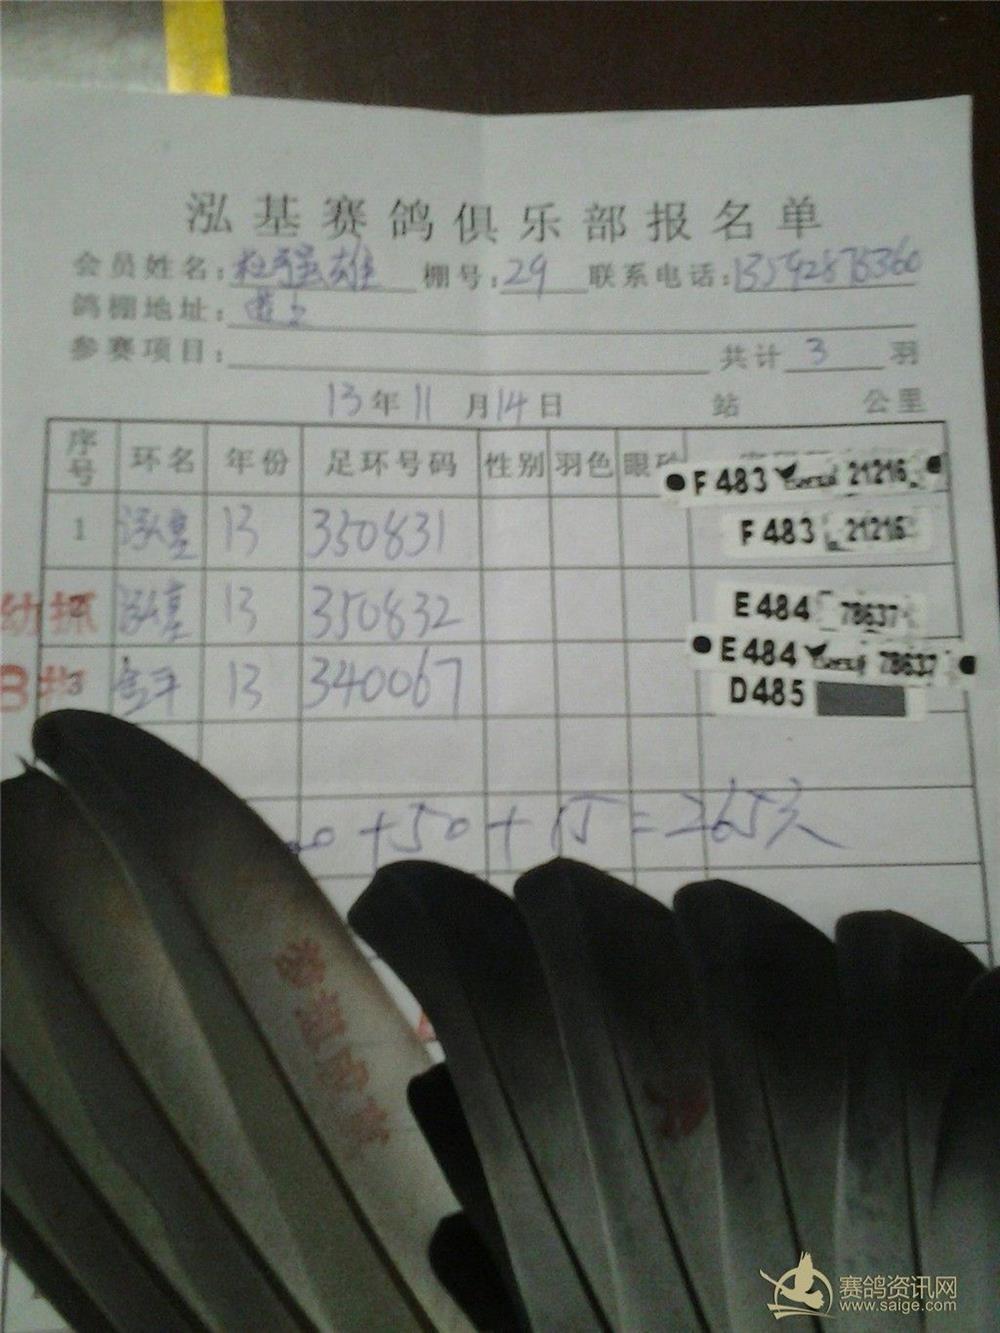 泓基赛鸽俱乐部报名单
会员姓名：杜强雄 棚号：29 联系电话：13592875360
鸽棚地址：道上
参赛项目： 共计 3 羽
13年11月14日 站 公里
序号 环名 年份 足环号码 性别 羽色 眼砂
F483 21216
1 泓基 13 350831 F483 21216
幼探 泓基 13 350832 E484 78637
E484 78637
3 13 340067 D485
+50+15=265元
赛鸽资讯网
www.saige.com